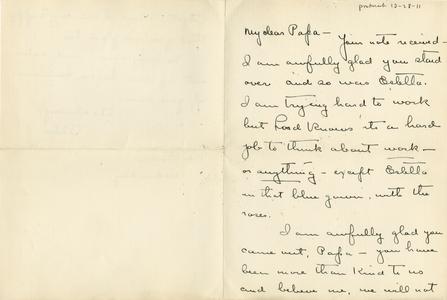 postmark 12-28-11
My dear Papa —
Your note received —
I am awfully glad you staid
over and so was Estella.
I am trying hard to work
but Lord knows its a hard
job to think about work —
or anything — except Estella
in that blue gown, with the
roses.
I am awfully glad you
came out, Papa — you have
been more than kind to us
and believe me, we will not